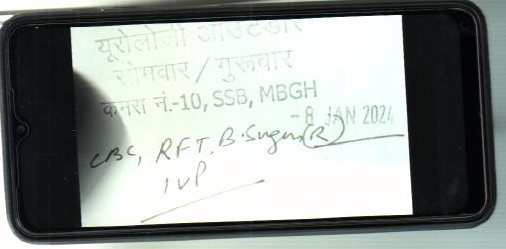 यूरोलोजी आउटडोर
सोमवार / गुरूवार
कमरा नं.-10, SSB, MBGH
-8 JAN 2024
CBC, RFT, B.Sugar (R)
IVP